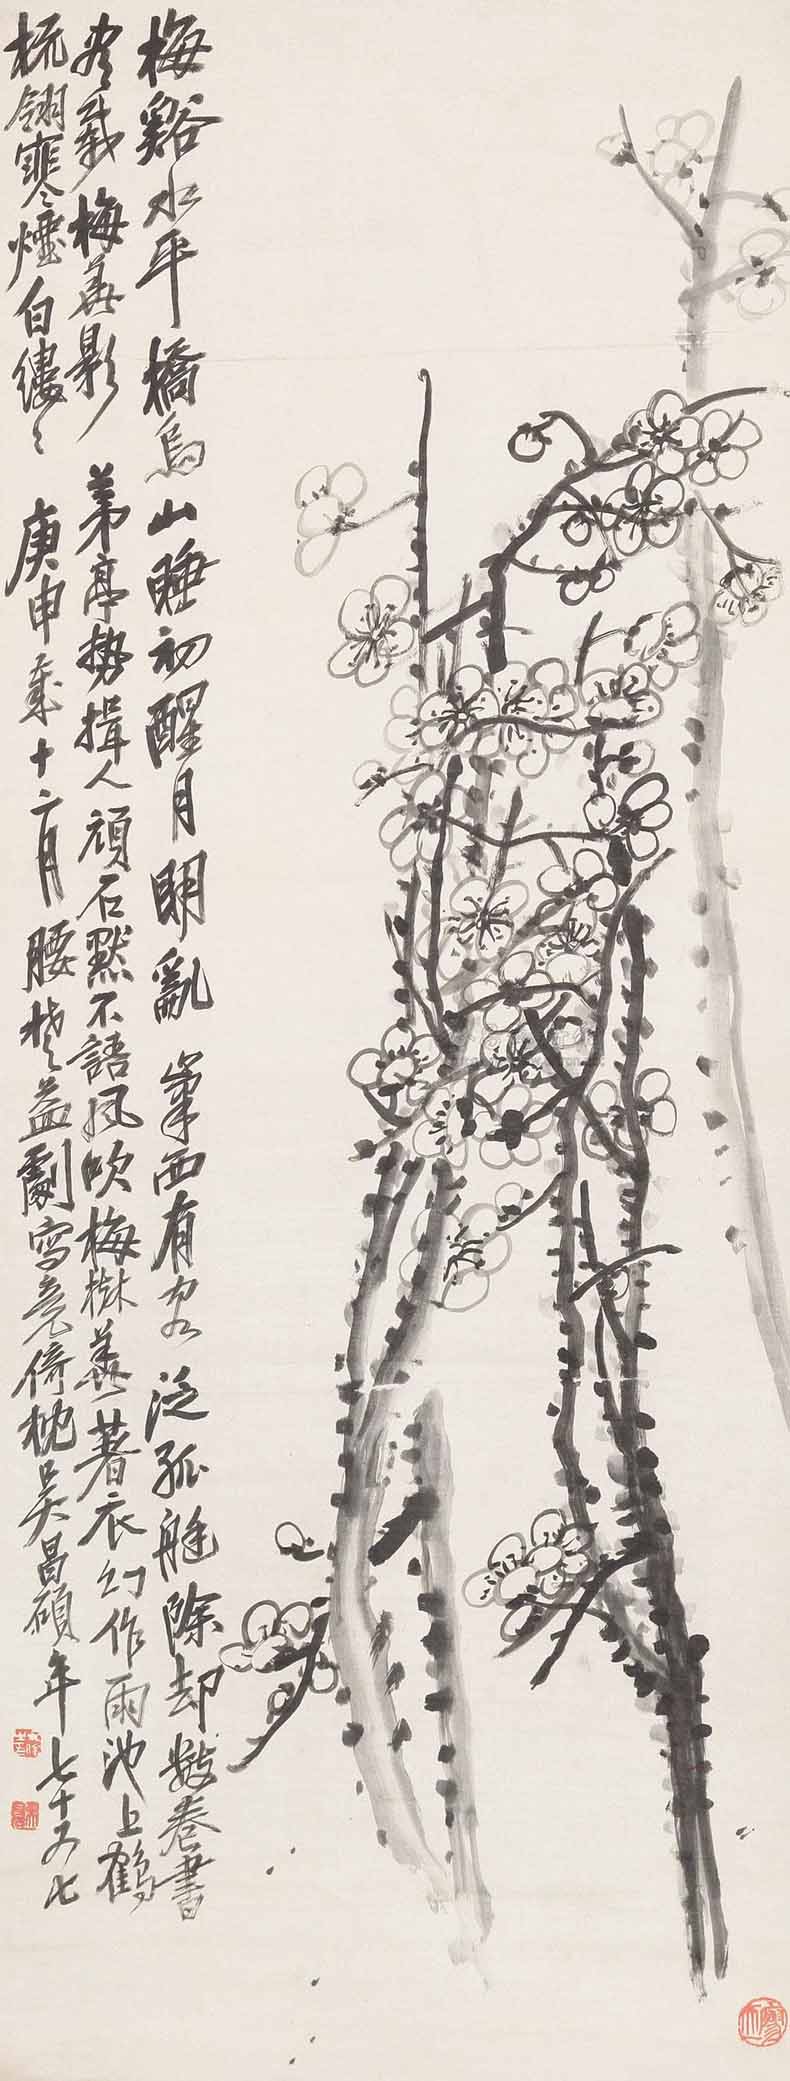 梅谿水平橋烏山睡初醒月明亂峯西有客泛孤艇除却數卷書
盡載梅華影 茅亭勢揖人頑石默不語風吹梅樹華著衣幻作雨池上鶴
梳翎寒煙白縷〻 庚申年十二月腰楚益劇寫竟倚枕吳昌碩年七十又七